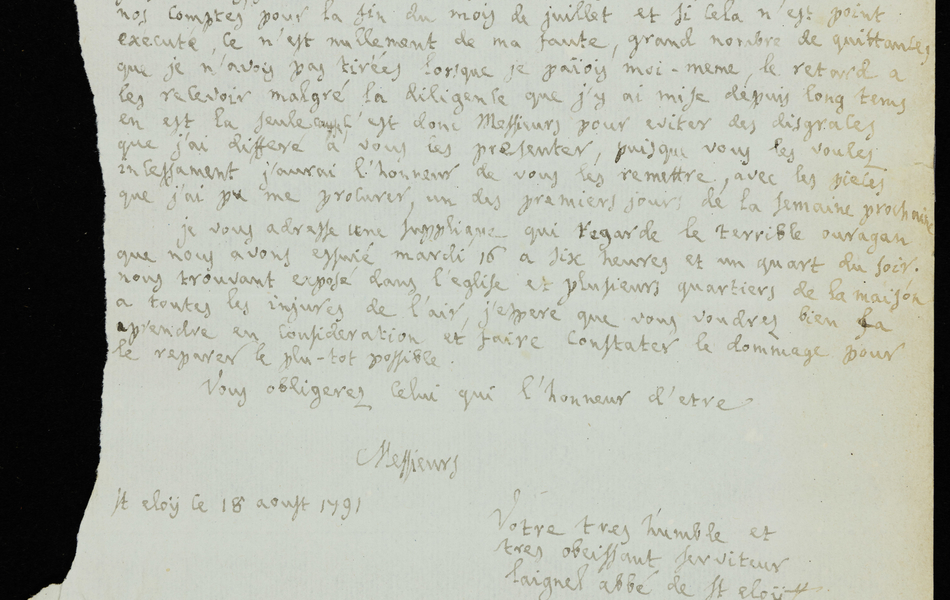 nos comptes pour la fin du mois de juillet et si cela n'est point
executé, ce n'est nullement de ma faute, grand nombre de quittances
que je n'avois pas tirées lorsque je païois moi-meme, le retard a
les recevoir malgré la diligence que j'y ai mise depuis long tems
en est la seule c'est donc Messieurs pour eviter des disgraces
que j'ai differé a vous les presenter, puisque vous les voules
incessament j'aurai l'honneur de vous les remettre, avec les pieces
que j'ai pu me procurer, un des premiers jours de la semaine prochaine
je vous adresse une supplique qui regarde le terrible ouragan
que nous avons essuié mardi 16 a six heures et un quart du soir.
nous trouvant exposé dans l'eglise et plusieurs quartiers de la maison
a toutes les injures de l'air, j'espere que vous voudres bien la
prendre en consideration et faire constater le dommage pour
le reparer le plu-tot possible.
Vous obligeres celui qui l'honneur d'etre
Messieurs
St eloÿ le 18 aoust 1791
Votre tres humble et
tres obeissant serviteur
laignel abbé de St eloÿ